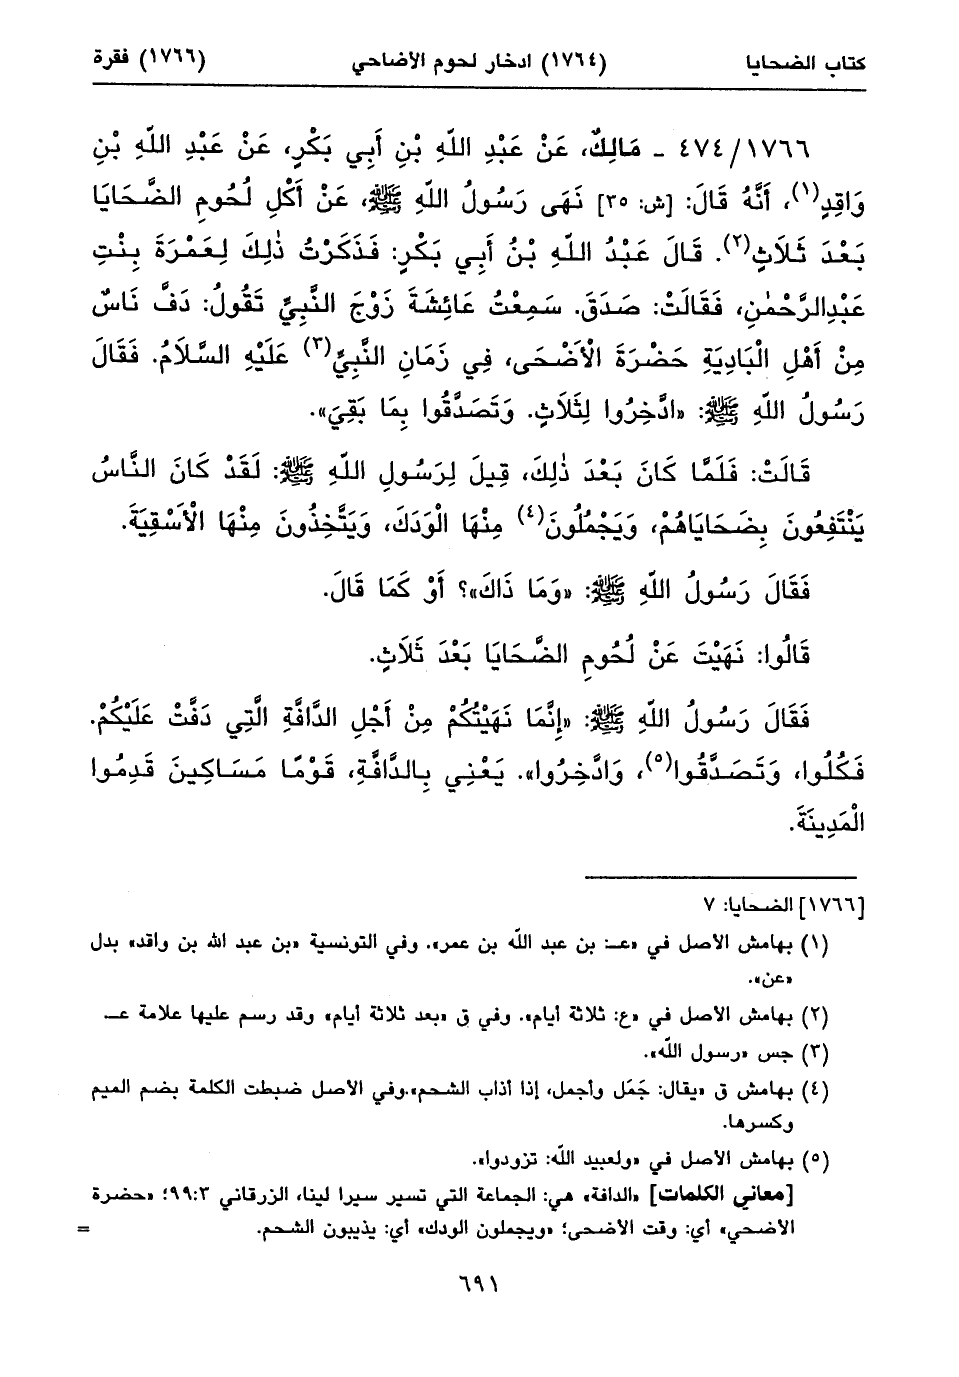 كتاب الضحايا (١٧٦٤) ادخار لحوم الأضاحي (١٧٦٦) فقرة
٤٧٤/١٧٦٦ - مَالِكٌ، عَنْ عَبْدِ اللّهِ بْنِ أَبِي بَكْرٍ، عَنْ عَبْدِ اللّهِ بْنِ
وَاقِدٍ(١)، أَنَّهُ قَالَ: [ش: ٣٥] نَهَى رَسُولُ اللّهِ ﷺ، عَنْ أَكْلِ لُحُومِ الضَّحَايَا
بَعْدَ ثَلَاثٍ(٢). قَالَ عَبْدُ اللّهِ بْنُ أَبِي بَكْرٍ: فَذَكَرْتُ ذٰلِكَ لِعَمْرَةَ بِنْتِ
عَبْدِالرَّحْمٰنِ، فَقَالَتْ: صَدَقَ. سَمِعْتُ عَائِشَةَ زَوْجَ النَّبِيِّ تَقُولُ: دَفَّ نَاسٌ
مِنْ أَهْلِ الْبَادِيَةِ حَضْرَةَ الْأَضْحَى، فِي زَمَانِ النَّبِيِّ(٣) عَلَيْهِ السَّلَامُ. فَقَالَ
رَسُولُ اللّهِ ﷺ: «ادَّخِرُوا لِثَلَاثٍ. وَتَصَدَّقُوا بِمَا بَقِيَ».
قَالَتْ: فَلَمَّا كَانَ بَعْدَ ذٰلِكَ، قِيلَ لِرَسُولِ اللّهِ ﷺ: لَقَدْ كَانَ النَّاسُ
يَنْتَفِعُونَ بِضَحَايَاهُمْ، وَيَجْمُلُونَ(٤) مِنْهَا الْوَدَكَ، وَيَتَّخِذُونَ مِنْهَا الْأَسْقِيَةَ.
فَقَالَ رَسُولُ اللّهِ ﷺ: «وَمَا ذَاكَ»؟ أَوْ كَمَا قَالَ.
قَالُوا: نَهَيْتَ عَنْ لُحُومِ الضَّحَايَا بَعْدَ ثَلَاثٍ.
فَقَالَ رَسُولُ اللّهِ ﷺ: «إِنَّمَا نَهَيْتُكُمْ مِنْ أَجْلِ الدَّافَّةِ الَّتِي دَفَّتْ عَلَيْكُمْ.
فَكُلُوا، وَتَصَدَّقُوا(٥)، وَادَّخِرُوا». يَعْنِي بِالدَّافَّةِ، قَوْمًا مَسَاكِينَ قَدِمُوا
الْمَدِينَةَ.
[١٧٦٦] الضحايا: ٧
(١) بهامش الأصل في «عـ: بن عبد اللّه بن عمر». وفي التونسية «بن عبد الله بن واقد» بدل
«عن».
(٢) بهامش الأصل في «ع: ثلاثة أيام». وفي ق «بعد ثلاثة أيام» وقد رسم عليها علامة عـ
(٣) جس «رسول اللّه».
(٤) بهامش ق «يقال: جَمَل وأجمل، إذا أذاب الشحم».وفي الأصل ضبطت الكلمة بضم الميم
وكسرها.
(٥) بهامش الأصل في «ولعبيد اللّه: تزودوا».
[معاني الكلمات] «الدافة» هي: الجماعة التي تسير سيرا لينا، الزرقاني ٩٩:٣؛ «حضرة
الأضحى» أي: وقت الأضحى؛ «ويجملون الودك» أي: يذيبون الشحم. =
٦٩١